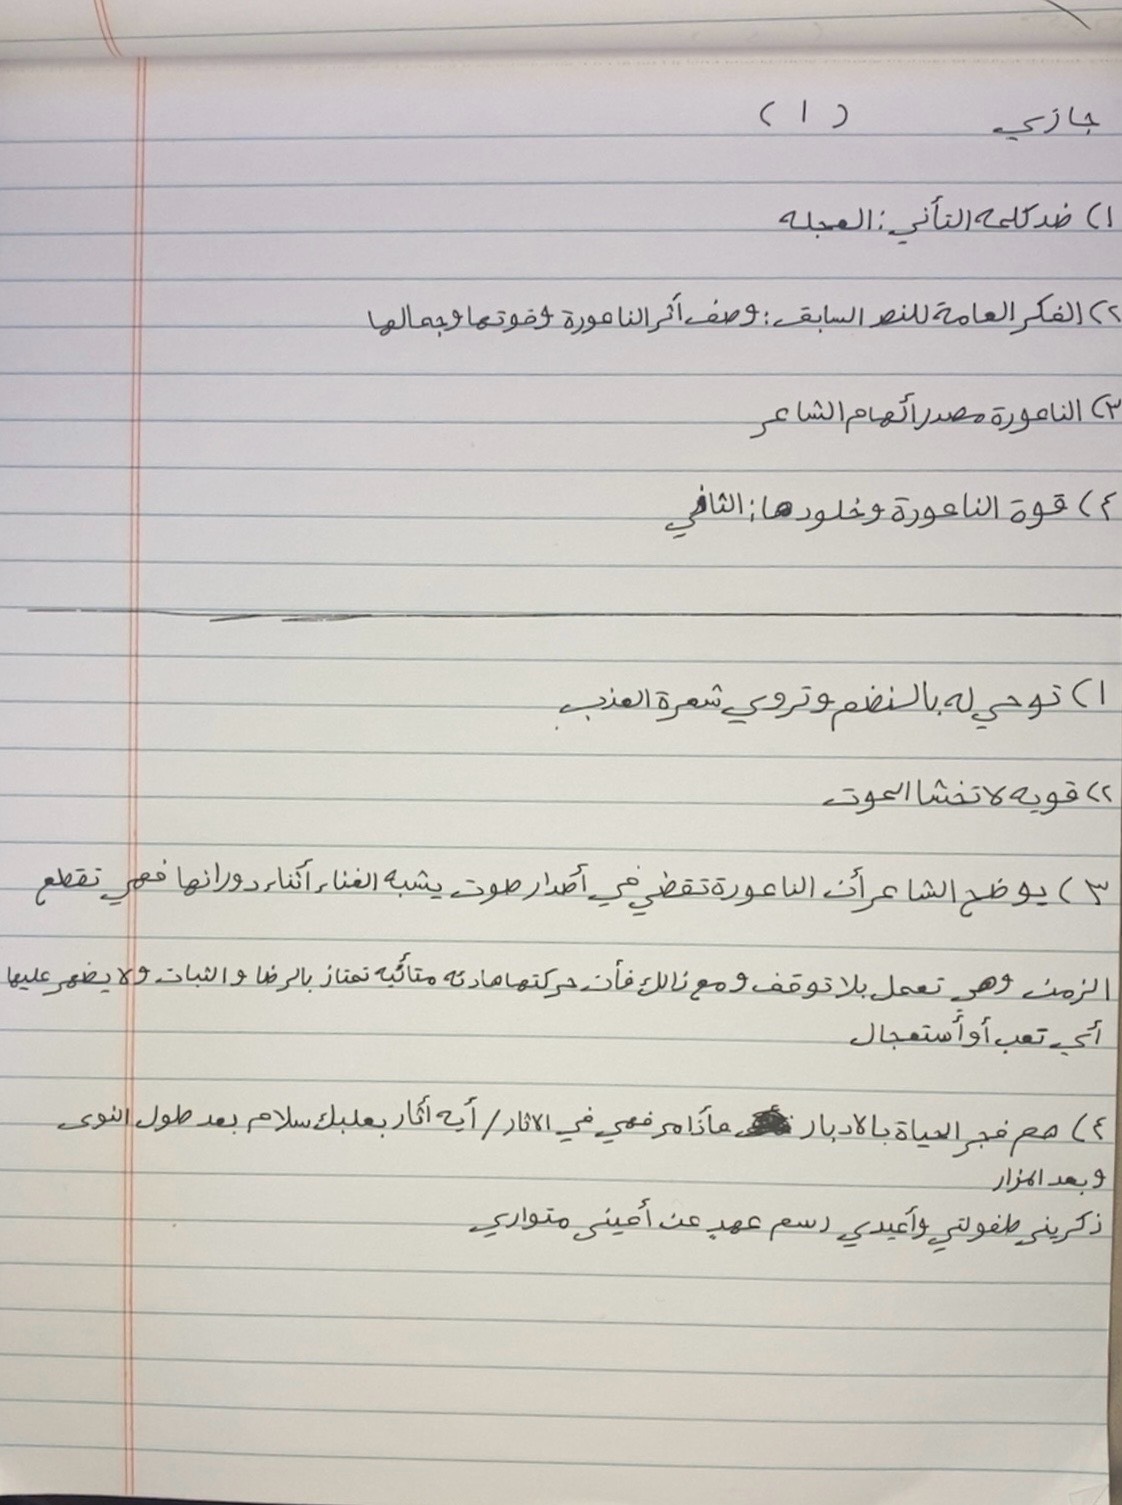 جازي ( ١ )
١) ضد كلمه التأني : العجله
٢) الفكر العامة للنص السابق : وصف أثر الناعورة وقوتها وجمالها
٣) الناعورة مصدر ألهام الشاعر
٤) قوة الناعورة وخلودها : الثاني
١) توحي له بالنضم وتروي شعرة العذب
٢) قويه لا تخشا الموت
٣) يوضح الشاعر أن الناعورة تقضي في أصدار صوت يشبه الغناء أثناء دورانها فهي تقطع
الزمن وهي تعمل بلا توقف ومع ذالك فأن حركتها هادئه متأنيه تمتاز بالرضا والثبات ولا يضهر عليها
أي تعب أو أستعجال
٤) هم فجر الحياة بالادبار فأذا مر فهي في الاثار / أيه أثار بعلبك سلام بعد طول النوى
وبعد المزار
ذكريني طفولتي وأعيدي رسم عهدٍ عن أعيني متواري